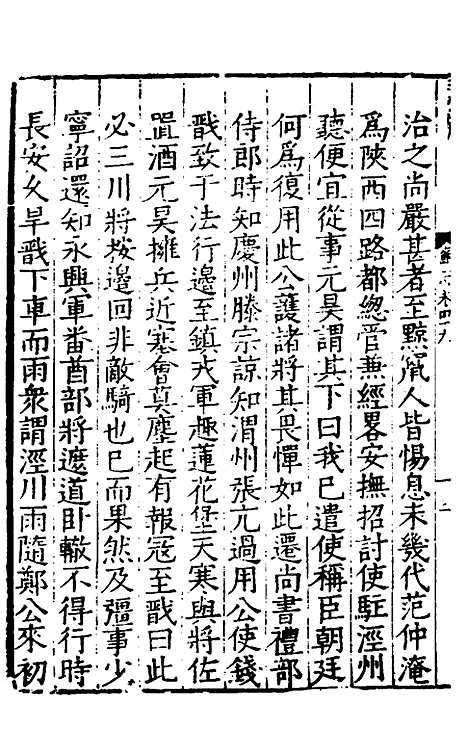 治之尚嚴甚者至黥𠛬人皆惕息未幾代范仲淹
爲陝西四路都緫管兼經畧安撫招討使駐涇州
聽便宜從事元昊謂其下曰我已遣使稱臣朝廷
何爲復用此公䕶諸將其畏憚如此遷尚書禮部
侍郎時知慶州滕宗諒知渭州張亢過用公使錢
戩致于法行邊至鎮戎軍趣蓮花堡天寒與將佐
置酒元昊擁兵近塞會莫塵起有報冦至戩曰此
必三川將按邊回非敵騎也已而果然及疆事少
寧詔還知永興軍畨酋部將遮道卧轍不得行時
長安久旱戩下車而雨衆謂涇川雨隨鄭公來初